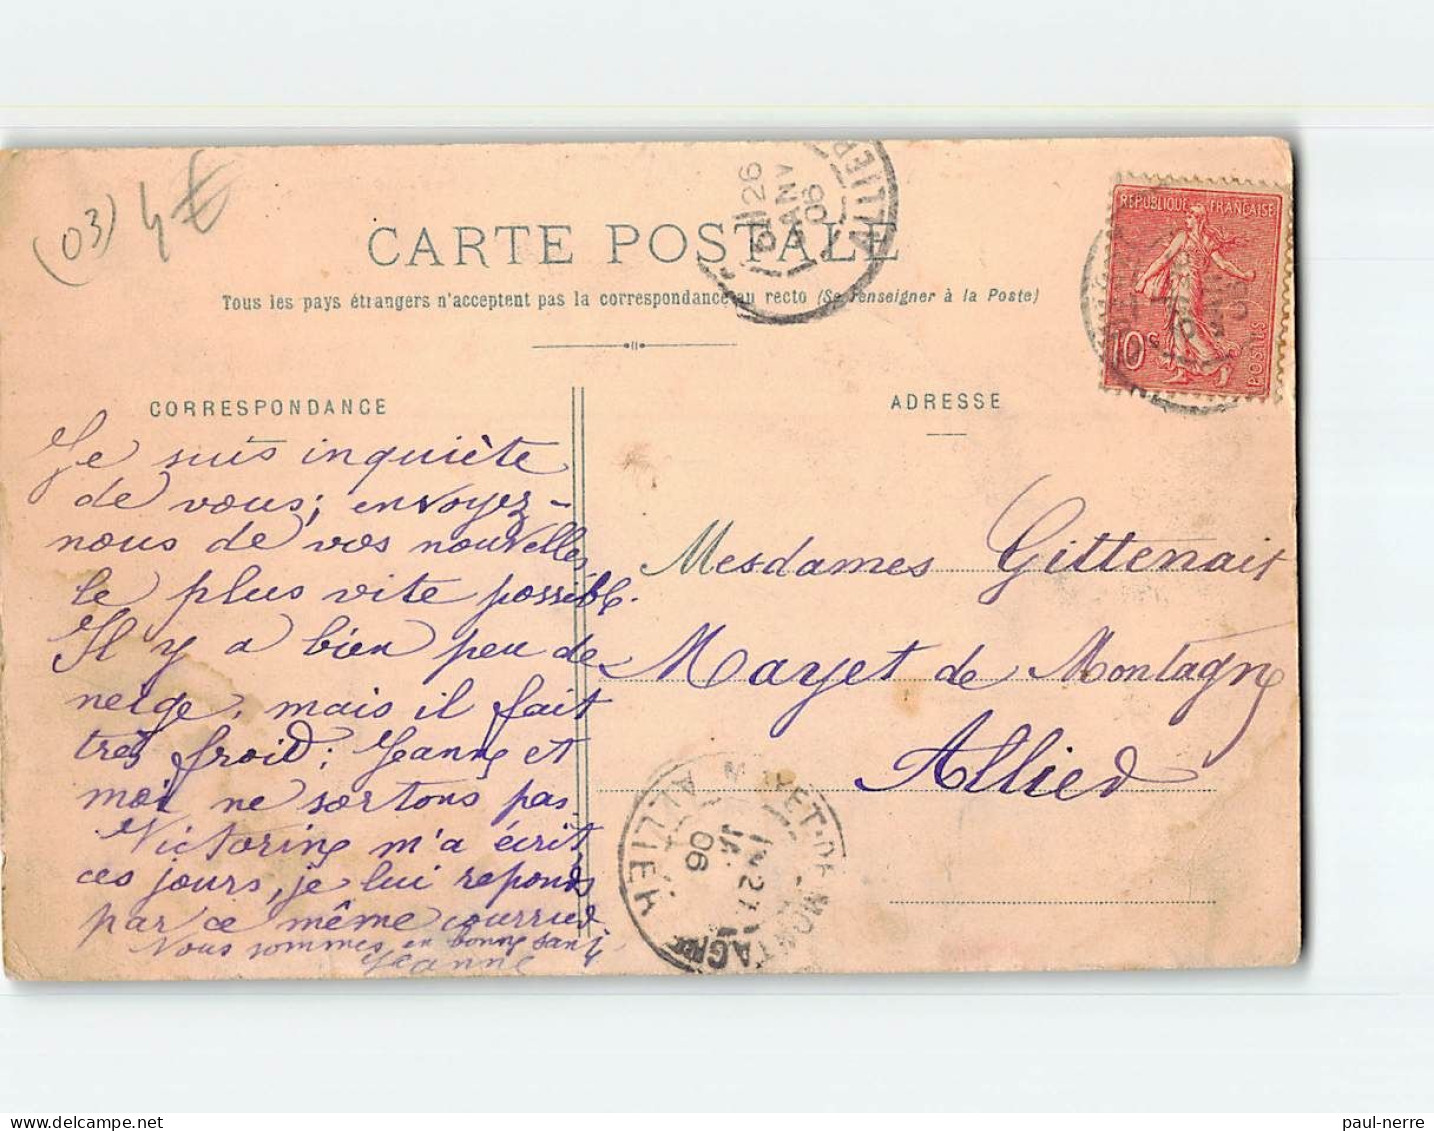 (03) 4 €
CARTE POSTALE
Tous les pays étrangers n'acceptent pas la correspondance au recto (Se renseigner à la Poste)
26
JANV
06
ALLIER
REPUBLIQUE FRANÇAISE
10c
POSTES
CORRESPONDANCE
Je suis inquiète
de vous; envoyez-
nous de vos nouvelles
le plus vite possible.
Il y a bien peu de
neige, mais il fait
très froid; Jeanne et
moi ne sortons pas
Victorine m'a écrit
ces jours, je lui reponds
par ce même courrier
Nous sommes en bonne santé
Jeanne
ADRESSE
Mesdames Gittenait
Mayet de Montagne
Allier
MAYET-DE-MONTAGNE
ALLIER
27
JANV
06
paul-nerre